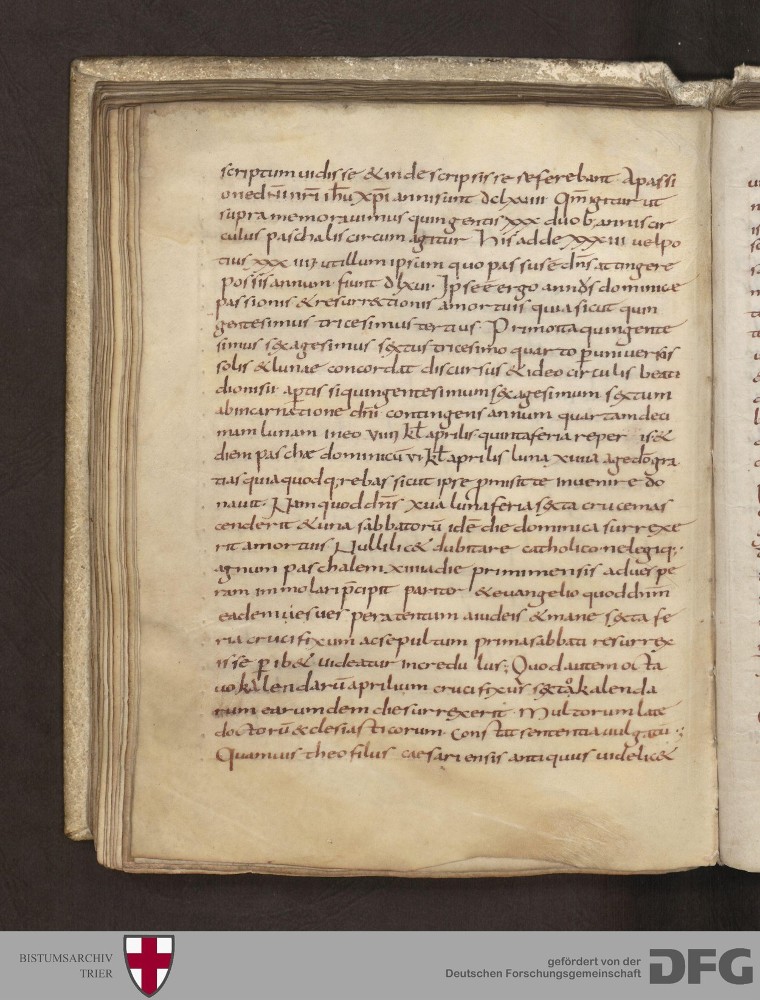 scriptum uidisse & inde scripsisse se ferebant. A passi
one dñi nri ihu xpi anni sunt dclxuiii Qm igitur ut
supra memorauimus quingentis xxx duob; annis cir
culus paschalis circum agitur his adde xxxiii uel po
tius xxxiiii ut illum ipsum quo passus ÷ dñs attingere
possis annum. fiunt dlxui. Ipse ÷ ergo annus dominice
passionis & resurrectionis a mortuis quia sicut quin
gentesimus tricesimus tertius Primo ita quingente
simus sexagesimus sextus tricesimo quarto p uniuersis
solis & lunae concordat discursus & ideo circulis beati
dionisii aptis si quingentesimum sexagesimum sextum
ab incarnatione dñi contingens annum quartam deci
mam lunam in eo uiiii kl aprilis quinta feria reper is &
diem paschae dominicū ui kl aprilis luna xuiia age dō gra
tias quia quod qrebas sicut ipse pmisit te inuenire do
nauit. Nam quod dñs xua luna feria sexta cruce mas
cenderit & una sabbatorū idē die dominica surrexe
rit a mortuis Nulli lic& dubitare catholico ne legi q;
agnum paschalem xiiiia die primi mensis ad uespe
ram immolari pcipit pariter & euangelio quod dnm
eadem uespera tentum a iudeis & mane sexta fe
ria crucifixum ac sepultum prima sabbati resurrex
isse phib& uideatur incredulus; Quod autem octa
uo kalendarū aprilium crucifixus sexto kalenda
rum earumdem die surrexerit Multorum late
doctorū ecclesiasticorum. Constat sententia uulgatū;
Quamuis theofilus caesariensis antiquus uidelic&
BISTUMSARCHIV
TRIER
gefördert von der
Deutschen Forschungsgemeinschaft
DFG